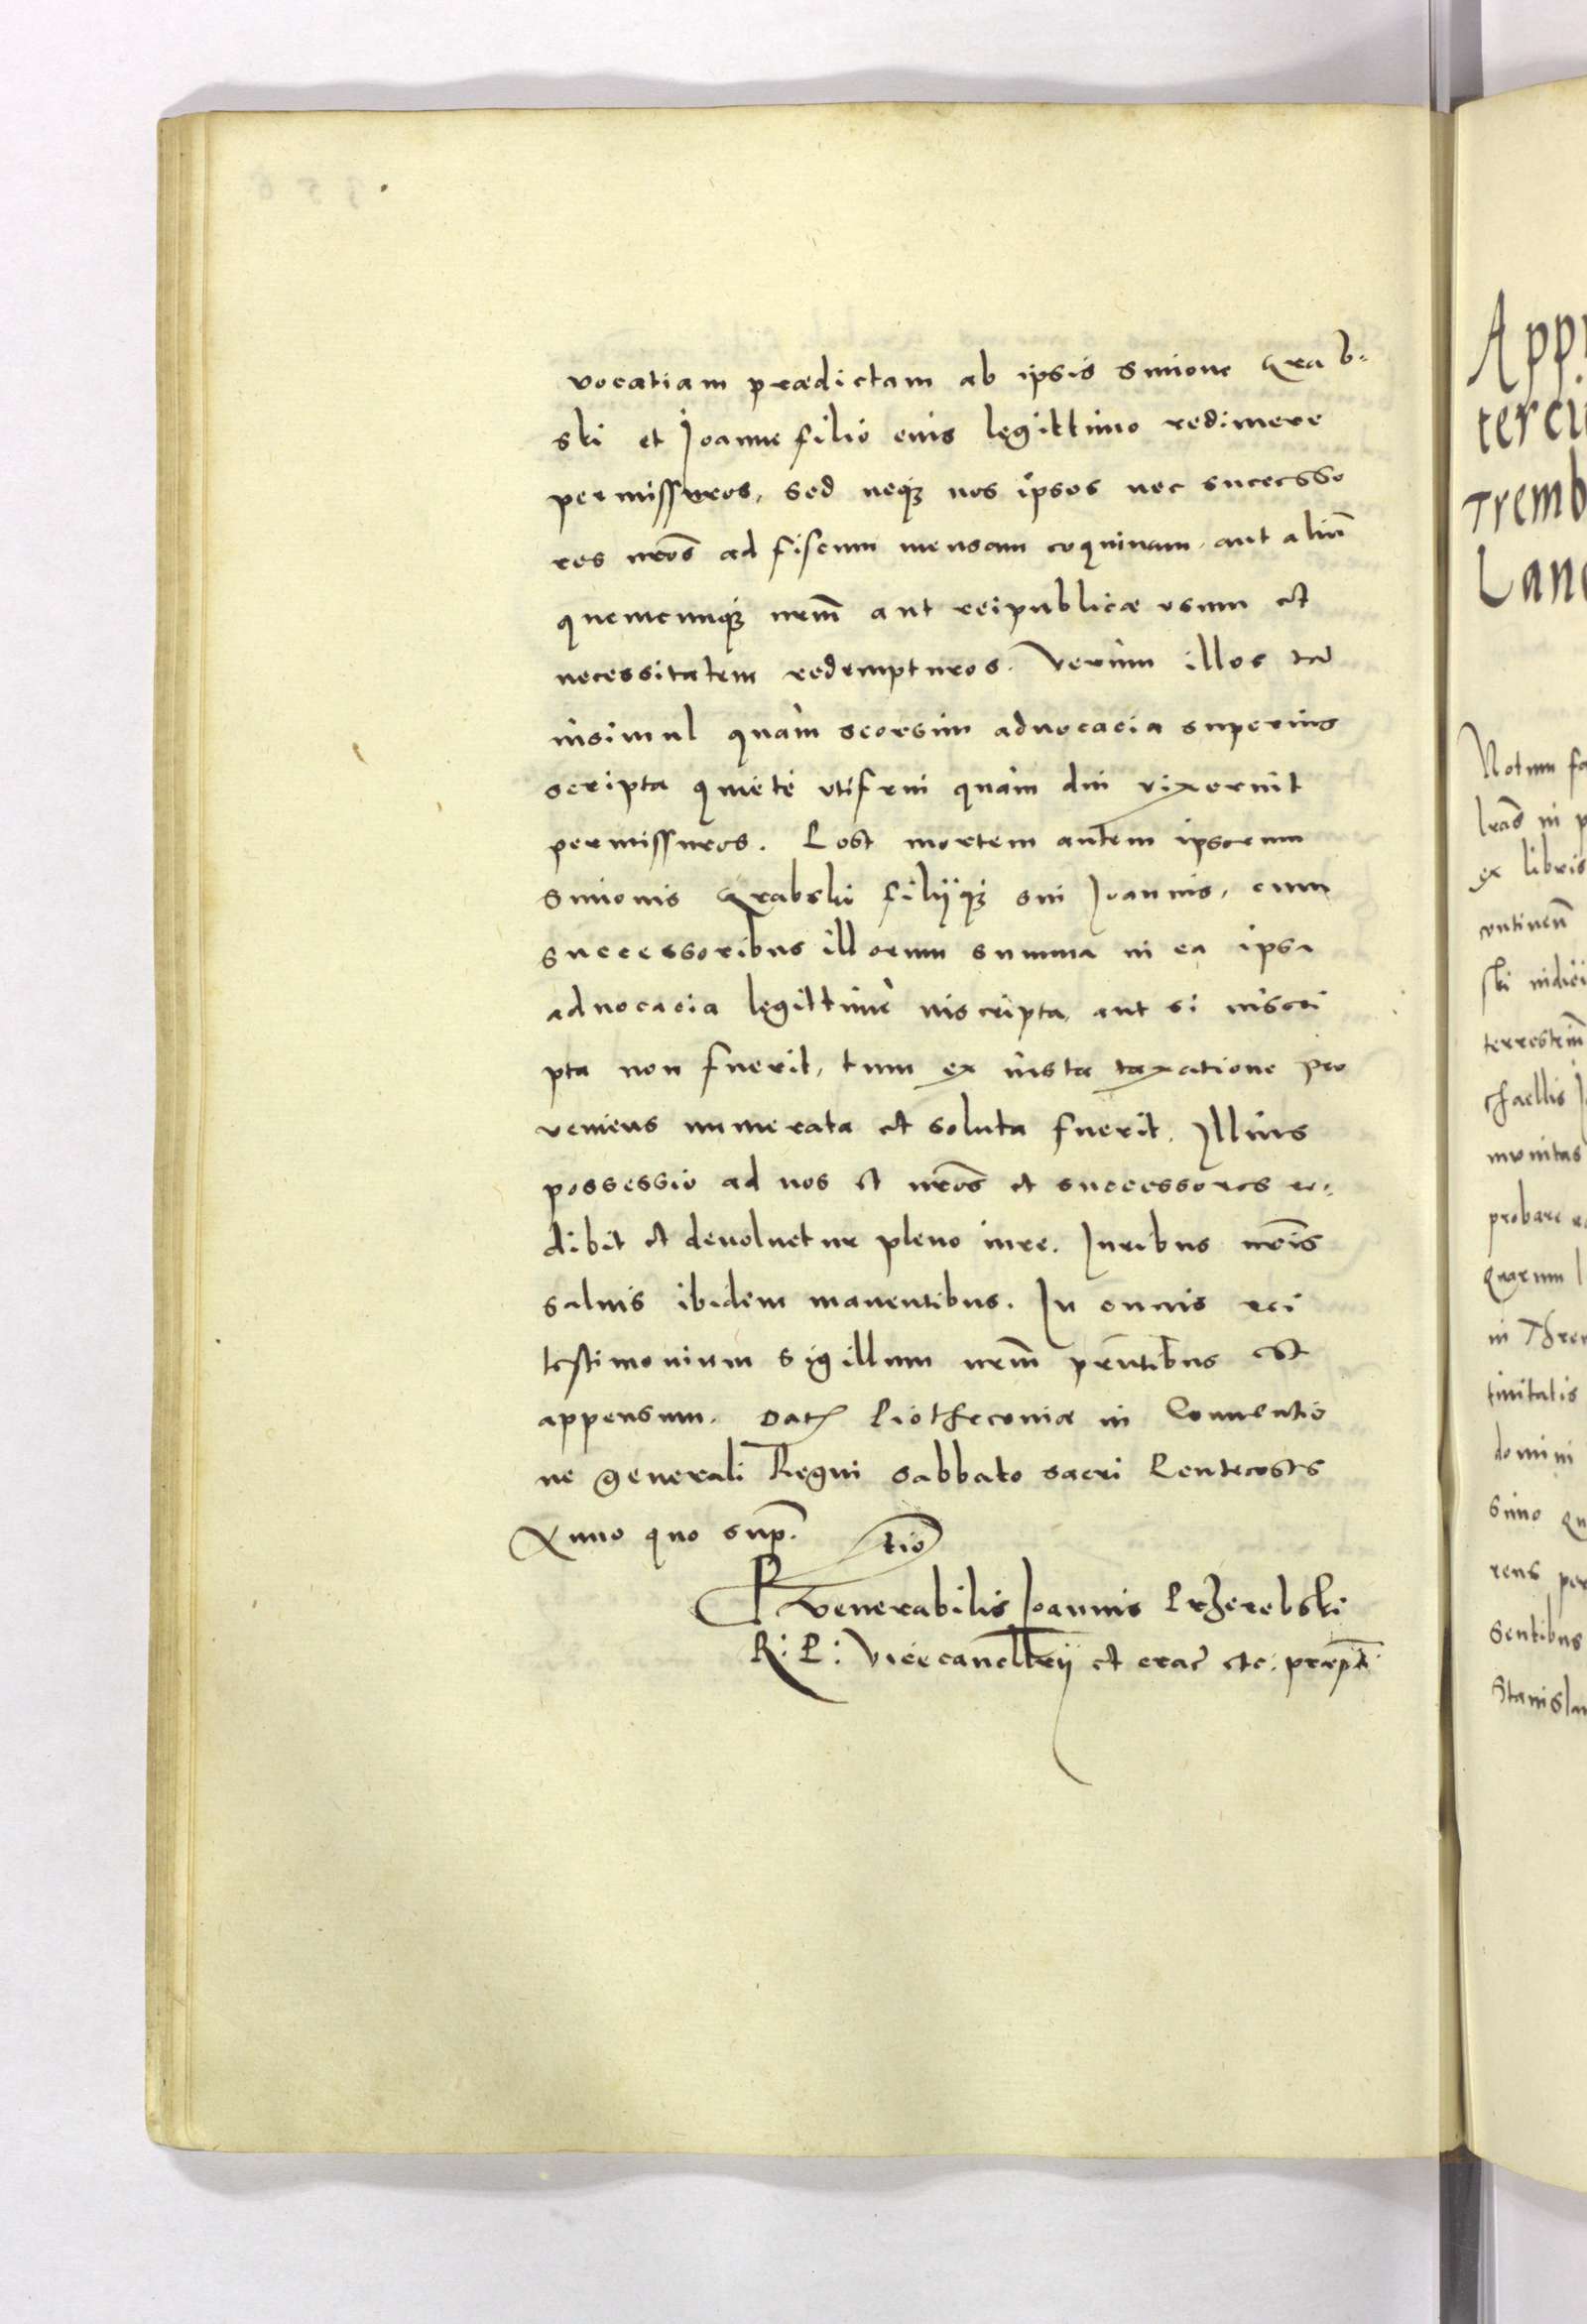 vocatiam prædictam ab ipsis Simone Grab-
ski et Joanne filio eius legittimo redimere
permissuros, sed neqȝ nos ipsos nec successo
res nr̃os ad fiscum mensam coquinam, aut aliũ
quemcunqȝ nrm̃ aut reipublicæ vsum et
necessitatem redempturos. Verùm illos tã
insimul quàm seorsim aduocacia superius
scripta quietè vtifrui quàm diu vixerint
permissuros. Post mortem autem ipsorum
Simonis Grabski filijqȝ sui Joannis, cum
successoribus illorum summa in ea ipsa
aduocacia legittimè inscripta, aut si inscri
pta non fuerit, tum ex iusta taxatione pro
veniens numerata et soluta fuerit. Illius
possessio ad nos et nr̃os et successores re-
dibit et deuoluetur pleno iure. Iuribus nr̃is
saluis ibidem manentibus. In cuius rei
testimonium sigillum nrm̃ pr̃ntibus est
appensum. Dat Piotrkoviæ in Conuentio
ne generali Regni sabbato sacri Pentecostes
Anno quo sup.
Rtio Venerabilis Joannis Przerebski
R: P: Vicecancellrij et crac̃ etc: præpti
Notum fa
ex libris
terrestrem
probare
quorum
domini
rens per
sentibus
Stanislau